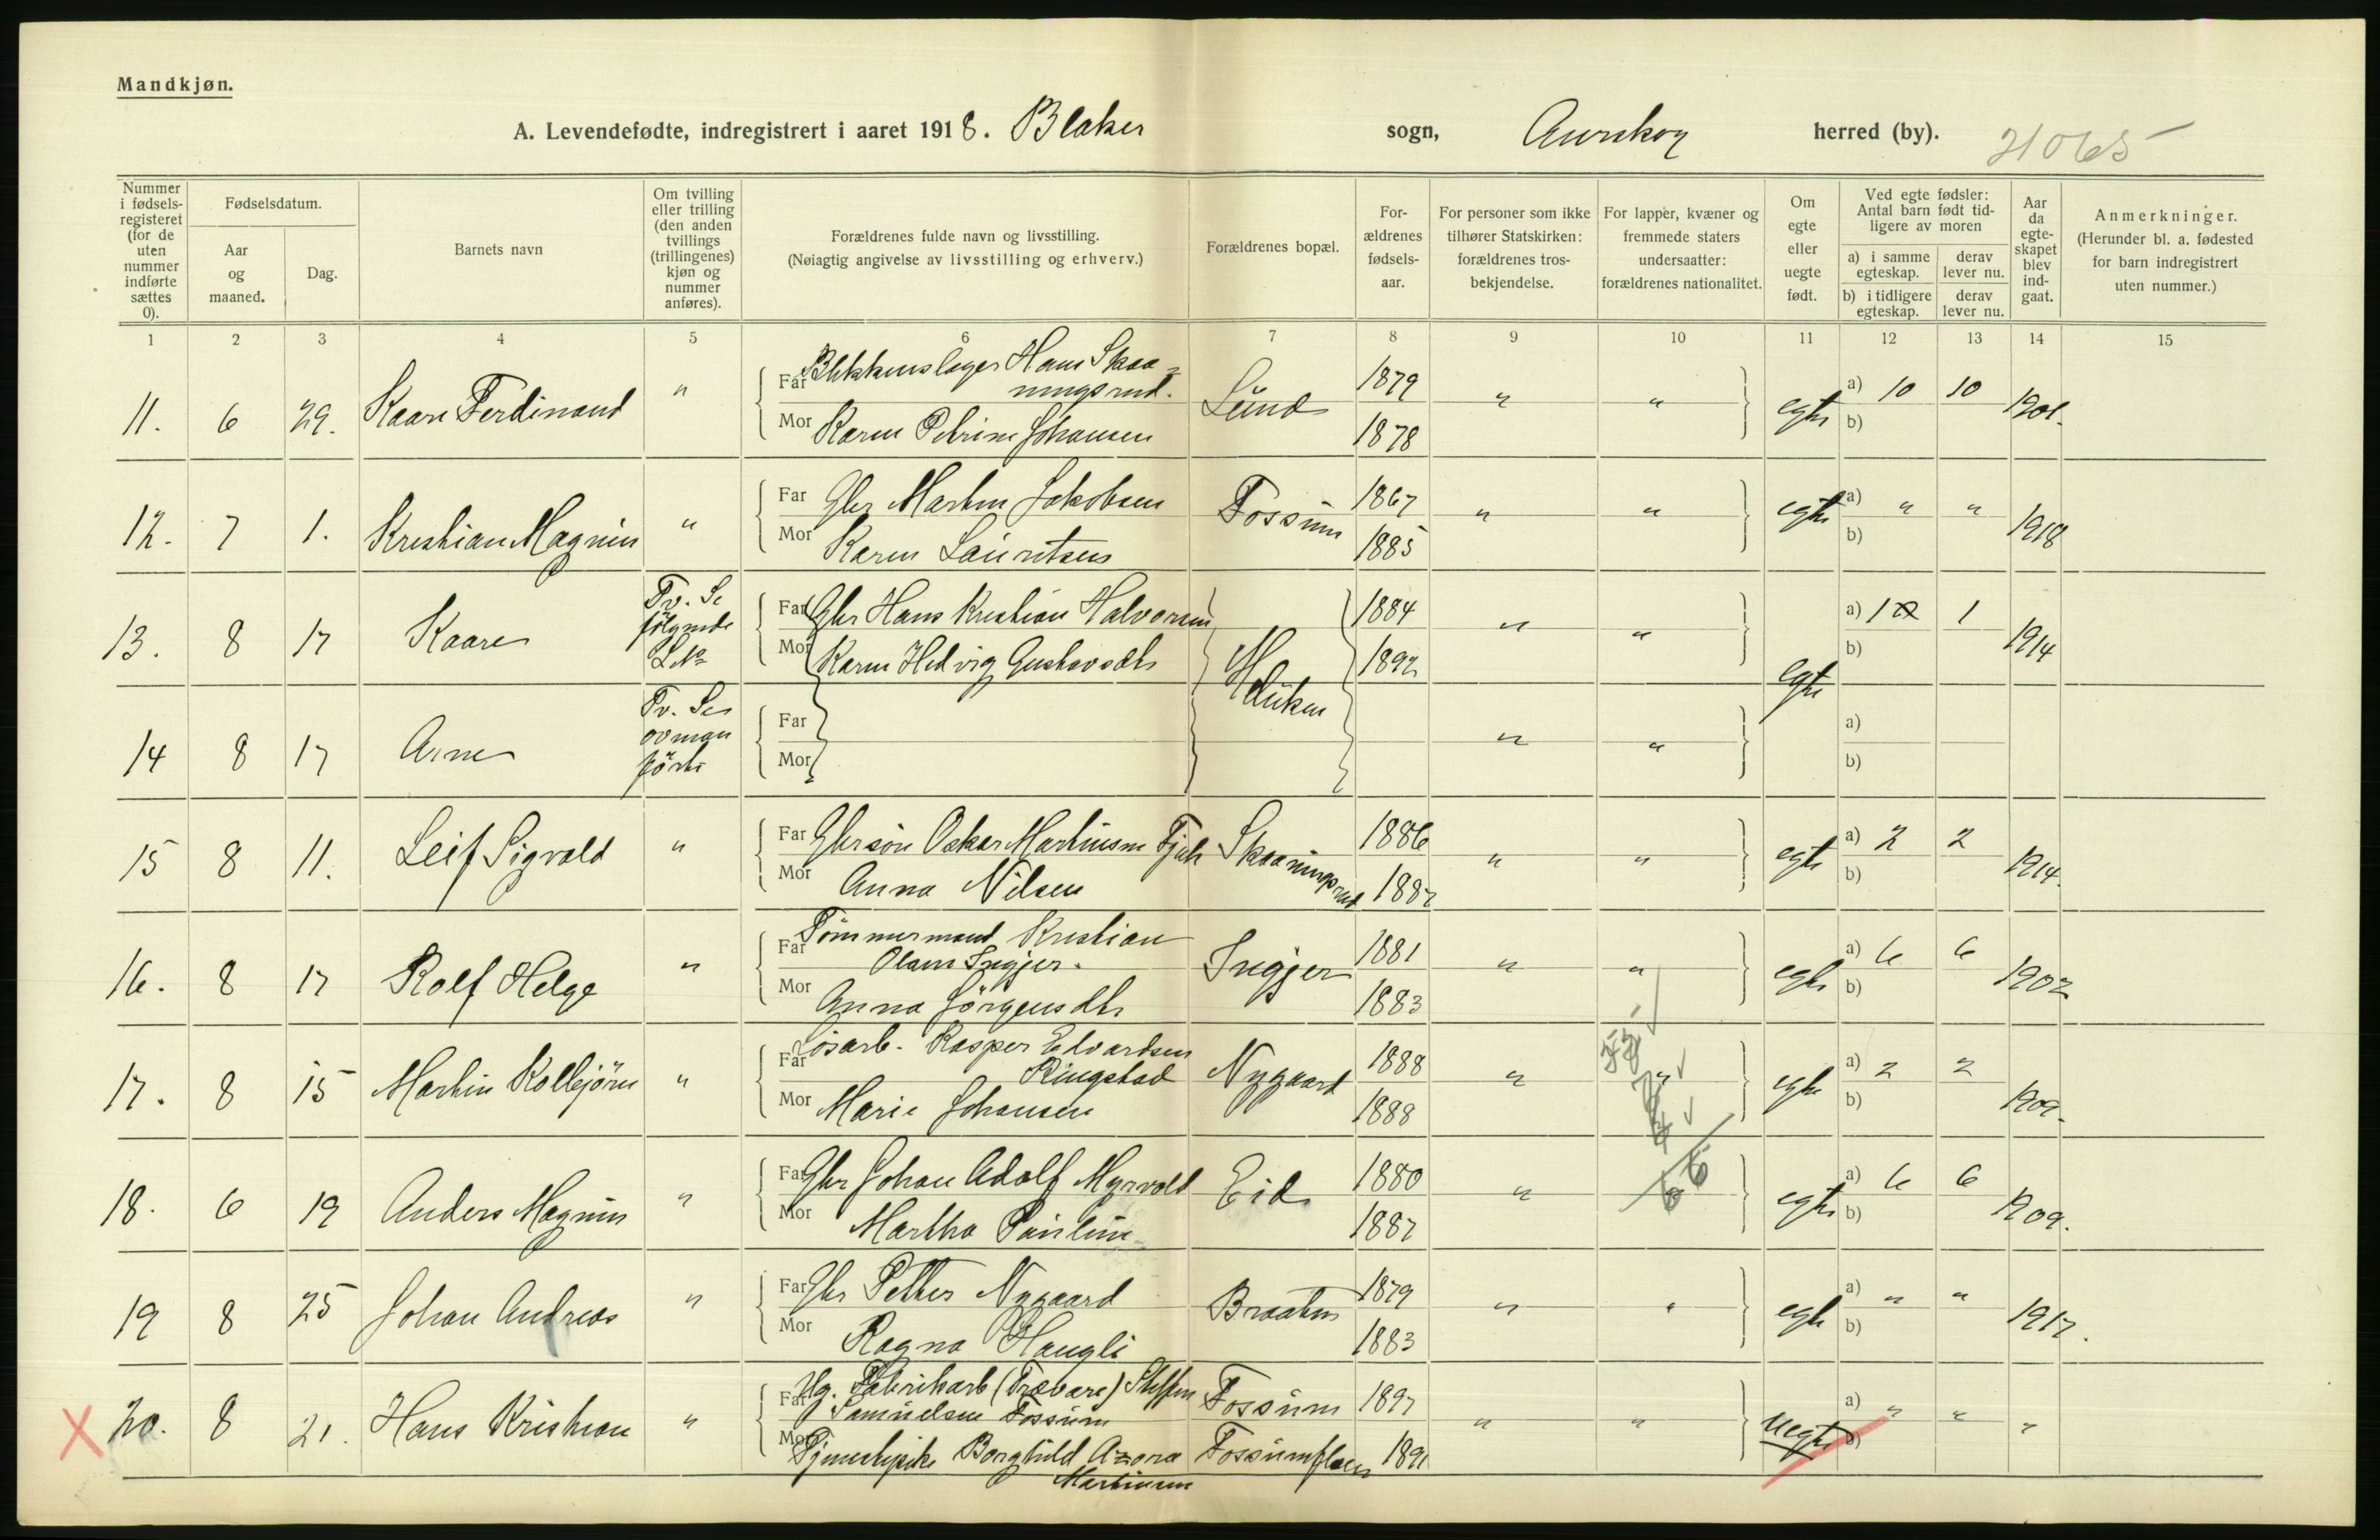 Mandkjøn.
A. Levendefødte, indregistrert i aaret 1918. Blaker sogn, Aurskog herred (by). 21065
Nummer i fødsels-registeret (for de uten nummer indførte sættes 0).
Fødselsdatum.
Aar og maaned.
Dag.
Barnets navn
Om tvilling eller trilling (den anden tvillings (trillingenes) kjøn og nummer anføres).
Forældrenes fulde navn og livsstilling.
(Nøiagtig angivelse av livsstilling og erhverv.)
Forældrenes bopæl.
For-ældrenes fødsels-aar.
For personer som ikke tilhører Statskirken: forældrenes tros-bekjendelse.
For lapper, kvæner og fremmede staters undersaatter: forældrenes nationalitet.
Om egte eller uegte født.
Ved egte fødsler: Antal barn født tid-ligere av moren
a) i samme egteskap. derav lever nu.
b) i tidligere egteskap. derav lever nu.
Aar da egte-skapet blev ind-gaat.
Anmerkninger.
(Herunder bl. a. fødested for barn indregistrert uten nummer.)
1 2 3 4 5 6 7 8 9 10 11 12 13 14 15
11. 6 29. Kaare Ferdinand " Far Blikkenslager Hans Skaa-
ningsrud. Lund 1879 " " egte a) 10 10 1901.
Mor Karen Petrine Johansen 1878 b)
12. 7 1. Kristian Magnus " Far Gbr Martin Jakobsen Fossum 1867 " " egte a) " " 1918
Mor Karen Lauritsen 1885 b)
13. 8 17 Kaare Tv. Se følgende L.No Far Gbr Hans Kristian Halvorsen 1884 " " a) 1 1 1914
Mor Karen Hedvig Gustavsdtr Huken 1892 egte b)
14 8 17 Arne Tv. Se ovmanførte Far " " a)
Mor b)
15 8 11. Leif Sigvald " Far Gbrsøn Oskar Martinsen Fjeld Skaaningsrud 1886 " " egte a) 2 2 1914.
Mor Anna Nilsen 1887 b)
16. 8 17 Rolf Helge " Far Tømmermand Kristian
Olsen Ingjer. Ingjer 1881 " " egte a) 6 6 1902
Mor Anna Jörgensdtr 1883 b)
17. 8 15 Martin Kolbjörn " Far Løsarb. Kasper Edvardsen
Ringstad Nygaard 1888 " " egte a) 2 2 1909.
Mor Marie Johansen 1888 b)
18. 6 19 Anders Magnus " Far Gbr Johan Adolf Myrvold Eid 1880 " " egte a) 6 6 1909.
Mor Martha Pauline 1887 b)
19 8 25 Johan Andreas " Far Gbr Petter Nygaard Braaten 1879 " " egte a) " " 1917.
Mor Ragna Haugli 1883 b)
X 20. 8 21. Hans Kristian " Far Ug. Fabrikarb (Trævare) Steffen
Samuelsen Fossum Fossum 1897 " " uegte a) " " "
Mor Tjenestepike Borghild Azora
Martinsen Fossumfloen 1891 b)